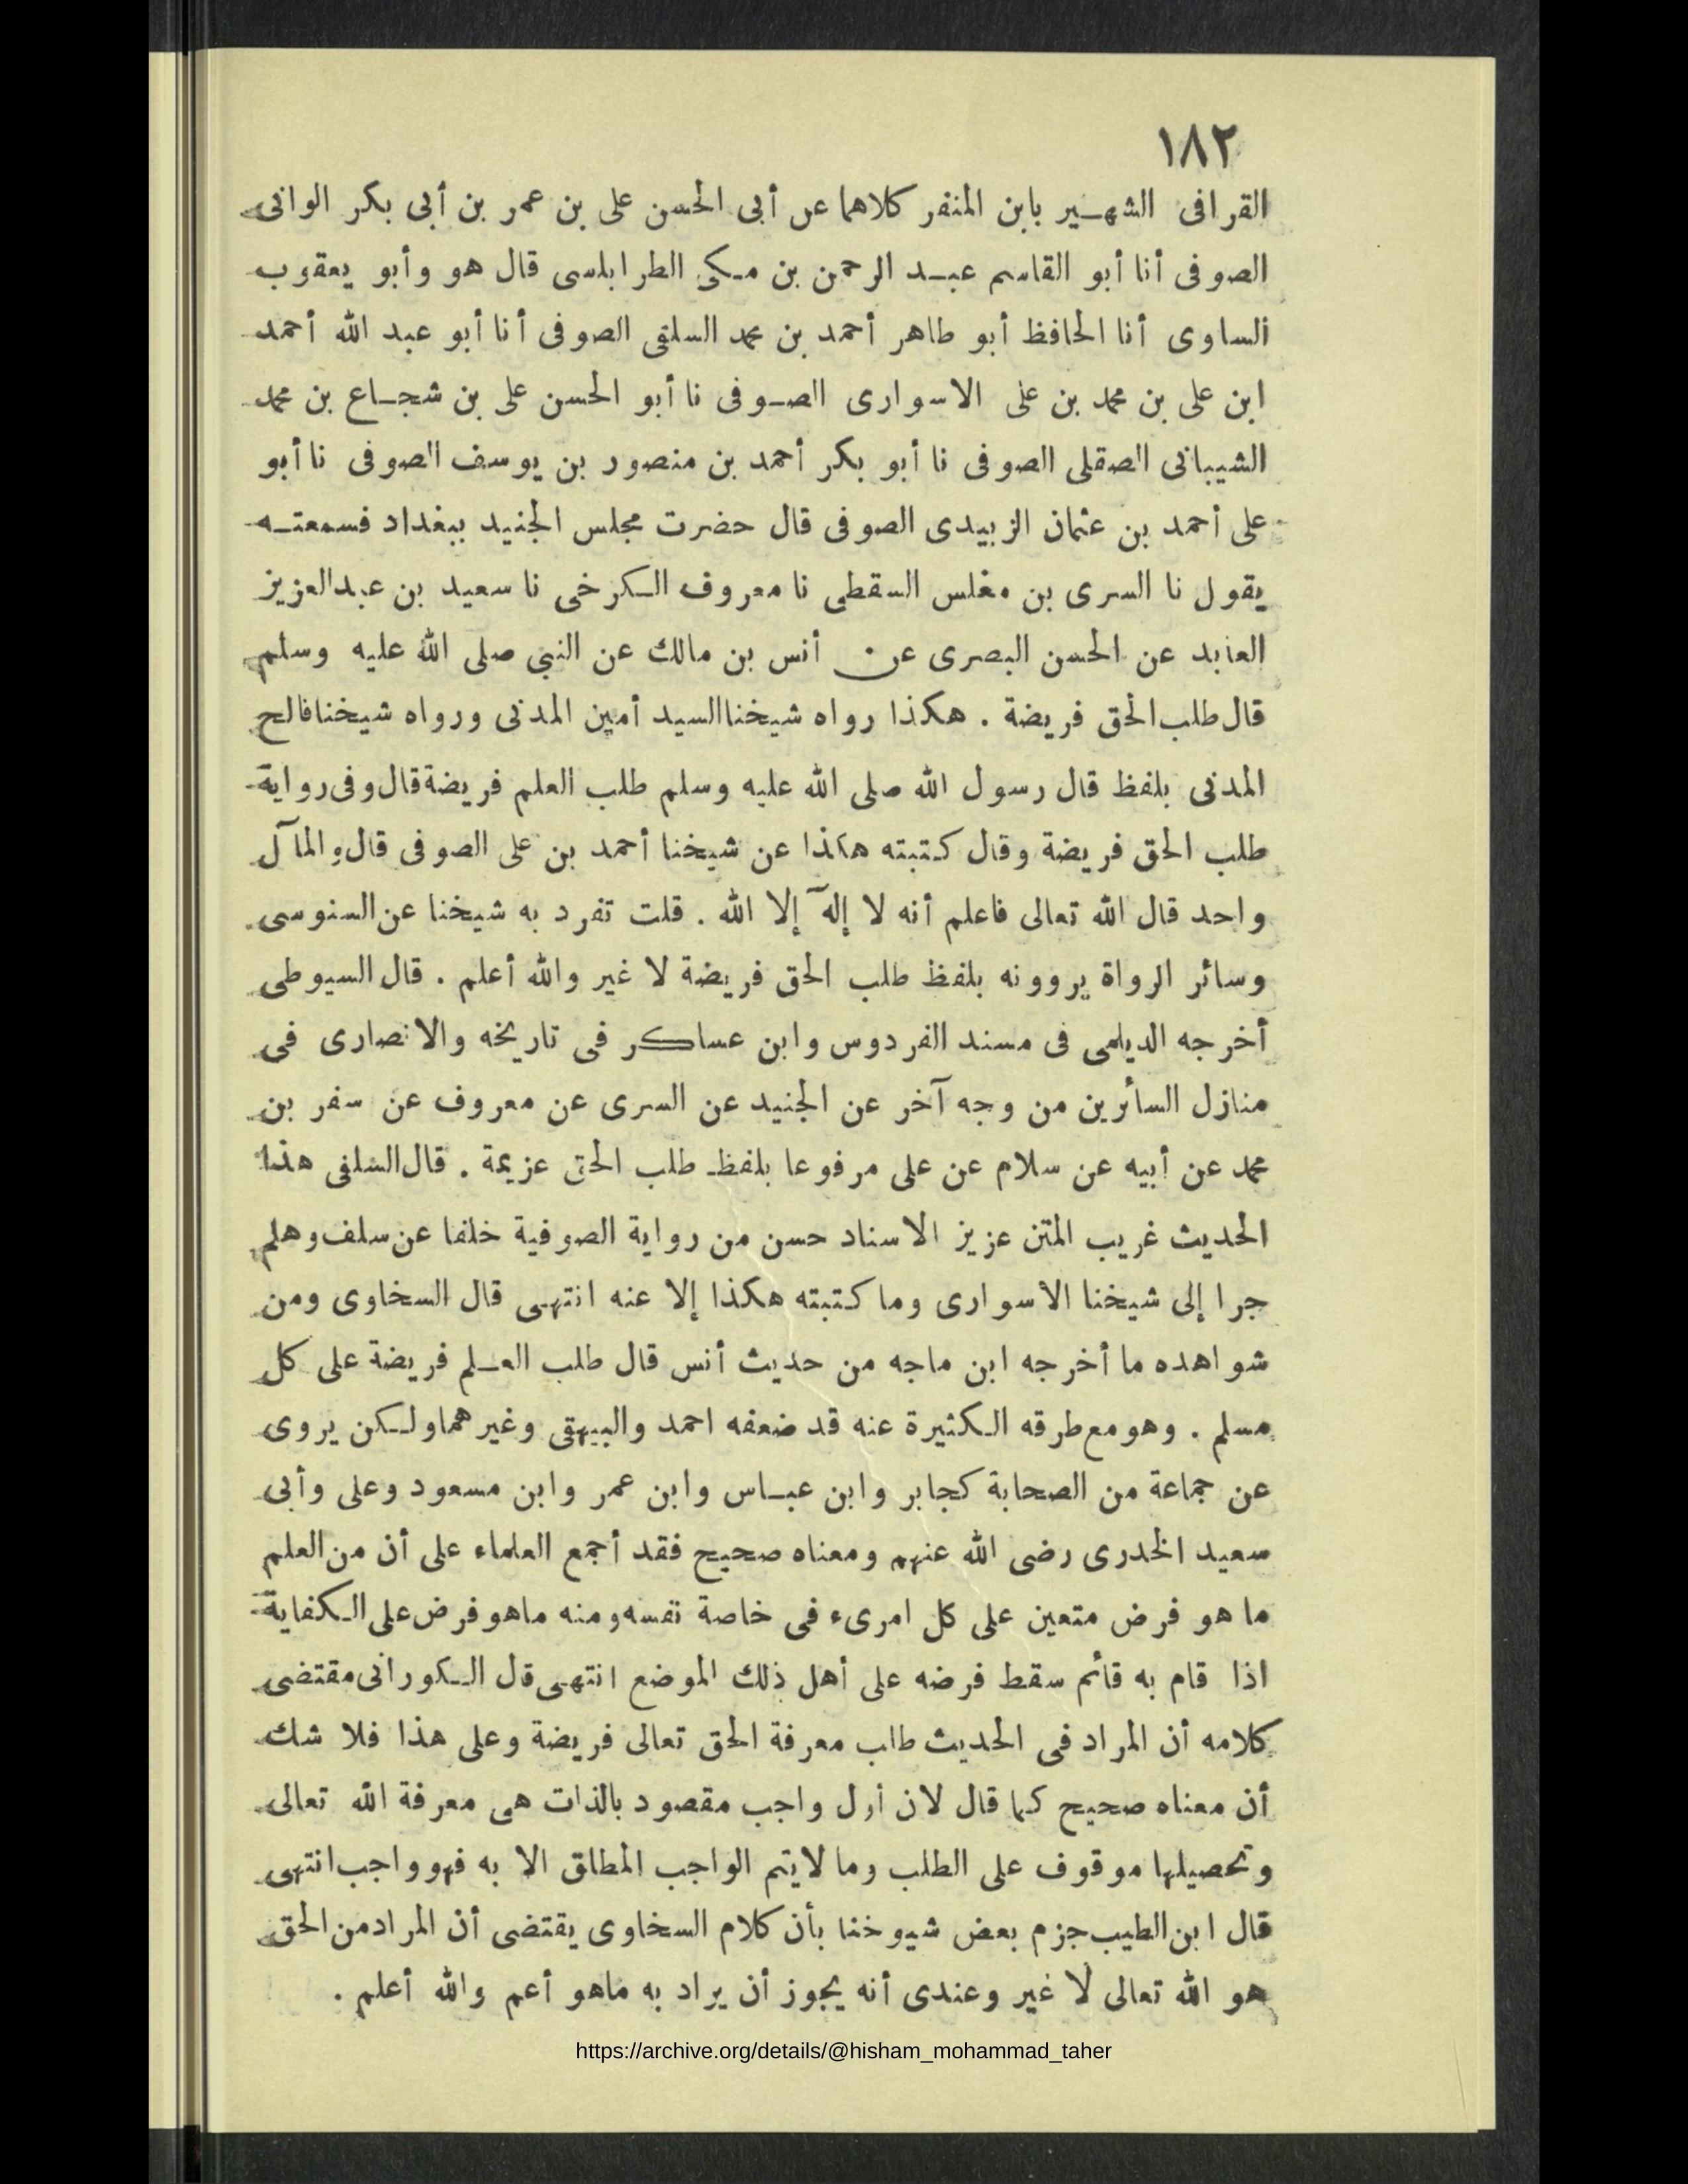 ١٨٢
القرافى الشهير بابن المنفر كلاهما عن أبى الحسن على بن عمر بن أبى بكر الوانى
الصوفى أنا أبو القاسم عبد الرحمن بن مكى الطرابلسى قال هو وأبو يعقوب
الساوى أنا الحافظ أبو طاهر أحمد بن محمد السلفى الصوفى أنا أبو عبد الله أحمد
ابن على بن محمد بن على الاسوارى الصوفى نا أبو الحسن على بن شجاع بن محمد
الشيبانى الصقلى الصوفى نا أبو بكر أحمد بن منصور بن يوسف الصوفى نا أبو
على أحمد بن عثمان الزبيدى الصوفى قال حضرت مجلس الجنيد ببغداد فسمعته
يقول نا السرى بن مغلس السقطى نا معروف الكرخى نا سعيد بن عبدالعزيز
العابد عن الحسن البصرى عن أنس بن مالك عن النبى صلى الله عليه وسلم
قال طلب الحق فريضة . هكذا رواه شيخنا السيد أمين المدنى ورواه شيخنا فالح
المدنى بلفظ قال رسول الله صلى الله عليه وسلم طلب العلم فريضة قال وفى رواية
طلب الحق فريضة وقال كتبته هكذا عن شيخنا أحمد بن على الصوفى قال والمآل
واحد قال الله تعالى فاعلم أنه لا إله إلا الله . قلت تفرد به شيخنا عن السنوسى
وسائر الرواة يروونه بلفظ طلب الحق فريضة لا غير والله أعلم . قال السيوطى
أخرجه الديلمى فى مسند الفردوس وابن عساكر فى تاريخه والانصارى فى
منازل السائرين من وجه آخر عن الجنيد عن السرى عن معروف عن سفر بن
محمد عن أبيه عن سلام عن على مرفوعا بلفظ طلب الحق عزيمة . قال السلفى هذا
الحديث غريب المتن عزيز الاسناد حسن من رواية الصوفية خلفا عن سلف وهلم
جرا إلى شيخنا الاسوارى وما كتبته هكذا إلا عنه انتهى قال السخاوى ومن
شواهده ما أخرجه ابن ماجه من حديث أنس قال طلب العلم فريضة على كل
مسلم . وهو مع طرقه الكثيرة عنه قد ضعفه احمد والبيهقى وغيرهما ولكن يروى
عن جماعة من الصحابة كجابر وابن عباس وابن عمر وابن مسعود وعلى وأبى
سعيد الخدرى رضى الله عنهم ومعناه صحيح فقد أجمع العلماء على أن من العلم
ما هو فرض متعين على كل امرىء فى خاصة نفسه ومنه ماهو فرض على الكفاية
اذا قام به قائم سقط فرضه على أهل ذلك الموضع انتهى قل الكورانى مقتضى
كلامه أن المراد فى الحديث طلب معرفة الحق تعالى فريضة وعلى هذا فلا شك
أن معناه صحيح كما قال لان أول واجب مقصود بالذات هى معرفة الله تعالى
وتحصيلها موقوف على الطلب وما لايتم الواجب المطلق الا به فهو واجب انتهى
قال ابن الطيب جزم بعض شيوخنا بأن كلام السخاوى يقتضى أن المراد من الحق
هو الله تعالى لا غير وعندى أنه يجوز أن يراد به ماهو أعم والله أعلم .
https://archive.org/details/@hisham_mohammad_taher